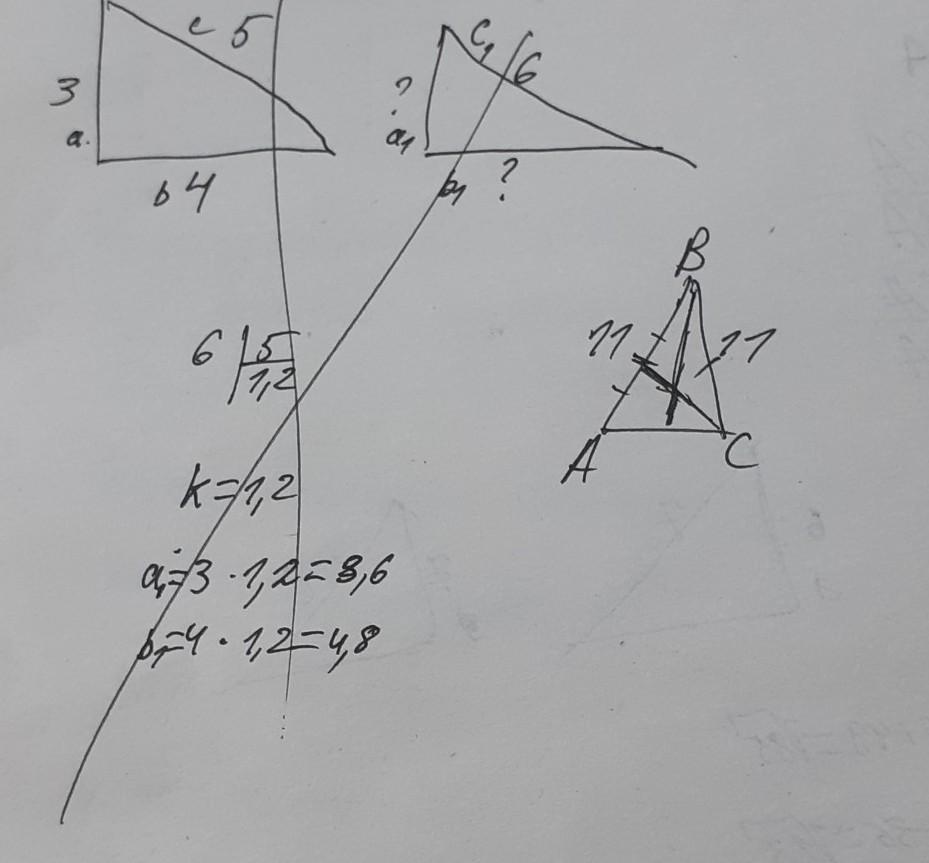 c 5
3
a.
b 4
c₁ 6
?
a₁
b₁ ?
B
11 11
A C
6 | 5
1,2
k=1,2
a₁=3 · 1,2=3,6
b₁=4 · 1,2=4,8